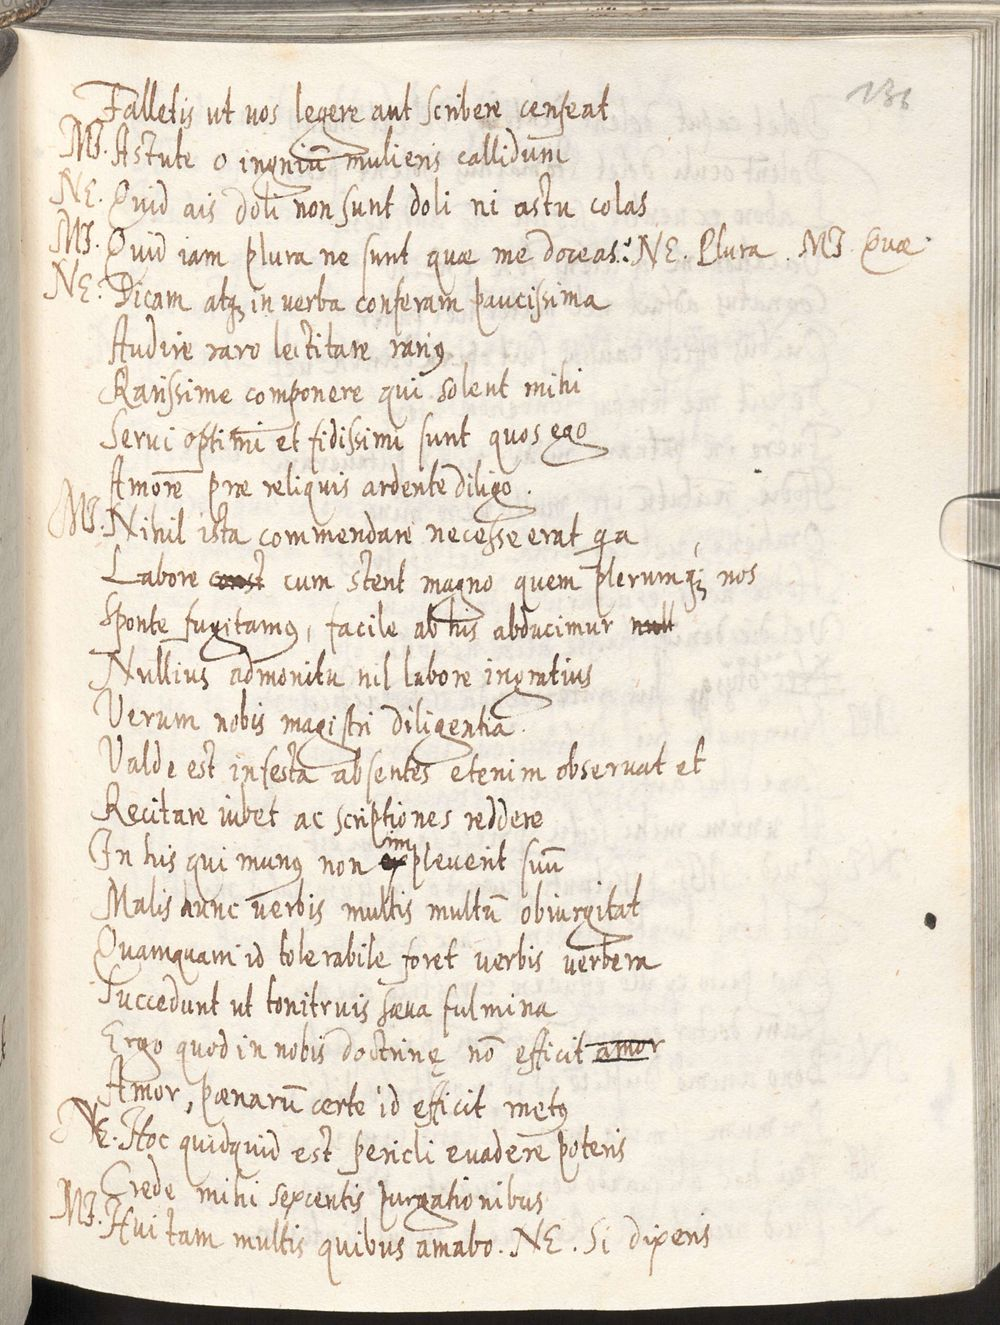 136
Falletis ut uos legere aut scribere censeat
MI. Astute o ingniũ muliens callidum
NE. Quid ais doli non sunt doli ni astu colas
MI. Quid iam plura ne sunt quæ me doceas: NE. Plura. MI. Quæ.
NE. Dicam atqꝫ in uerba conferam paucissima
Audire raro lectitare rariꝰ
Rarissime componere qui solent mihi
Serui optimi et fidissimi sunt quos ego
Amorẽ præ reliquis ardente diligo.
MI. Nihil ista commendare necesse erat qa
Labore const cum stent magno quem plerumqꝫ nos
Sponte fugitamꝰ, facile ab his abducimur null
Nullius admonitu nil labore ingratius
Verum nobis magistri diligentia.
Valde est infesta absentes etenim obseruat et
Recitare iubet ac scriptiones reddere
In his qui munꝰ non implenerit suũ
Malis nunc uerbis multis multũ obiurgitat
Quamquam id tolerabile foret uerbis uerbera
Succedunt ut tonitruis sæua fulmina
Ergo quod in nobis doctrinę nõ efficit amor
Amor, pænarũ certe id efficit metꝰ
NE. Hoc quidquid est pericli euadere poteris
Crede mihi sexcentis purgationibus
MI. Hui tam multis quibus amabo. NE. Si dixeris